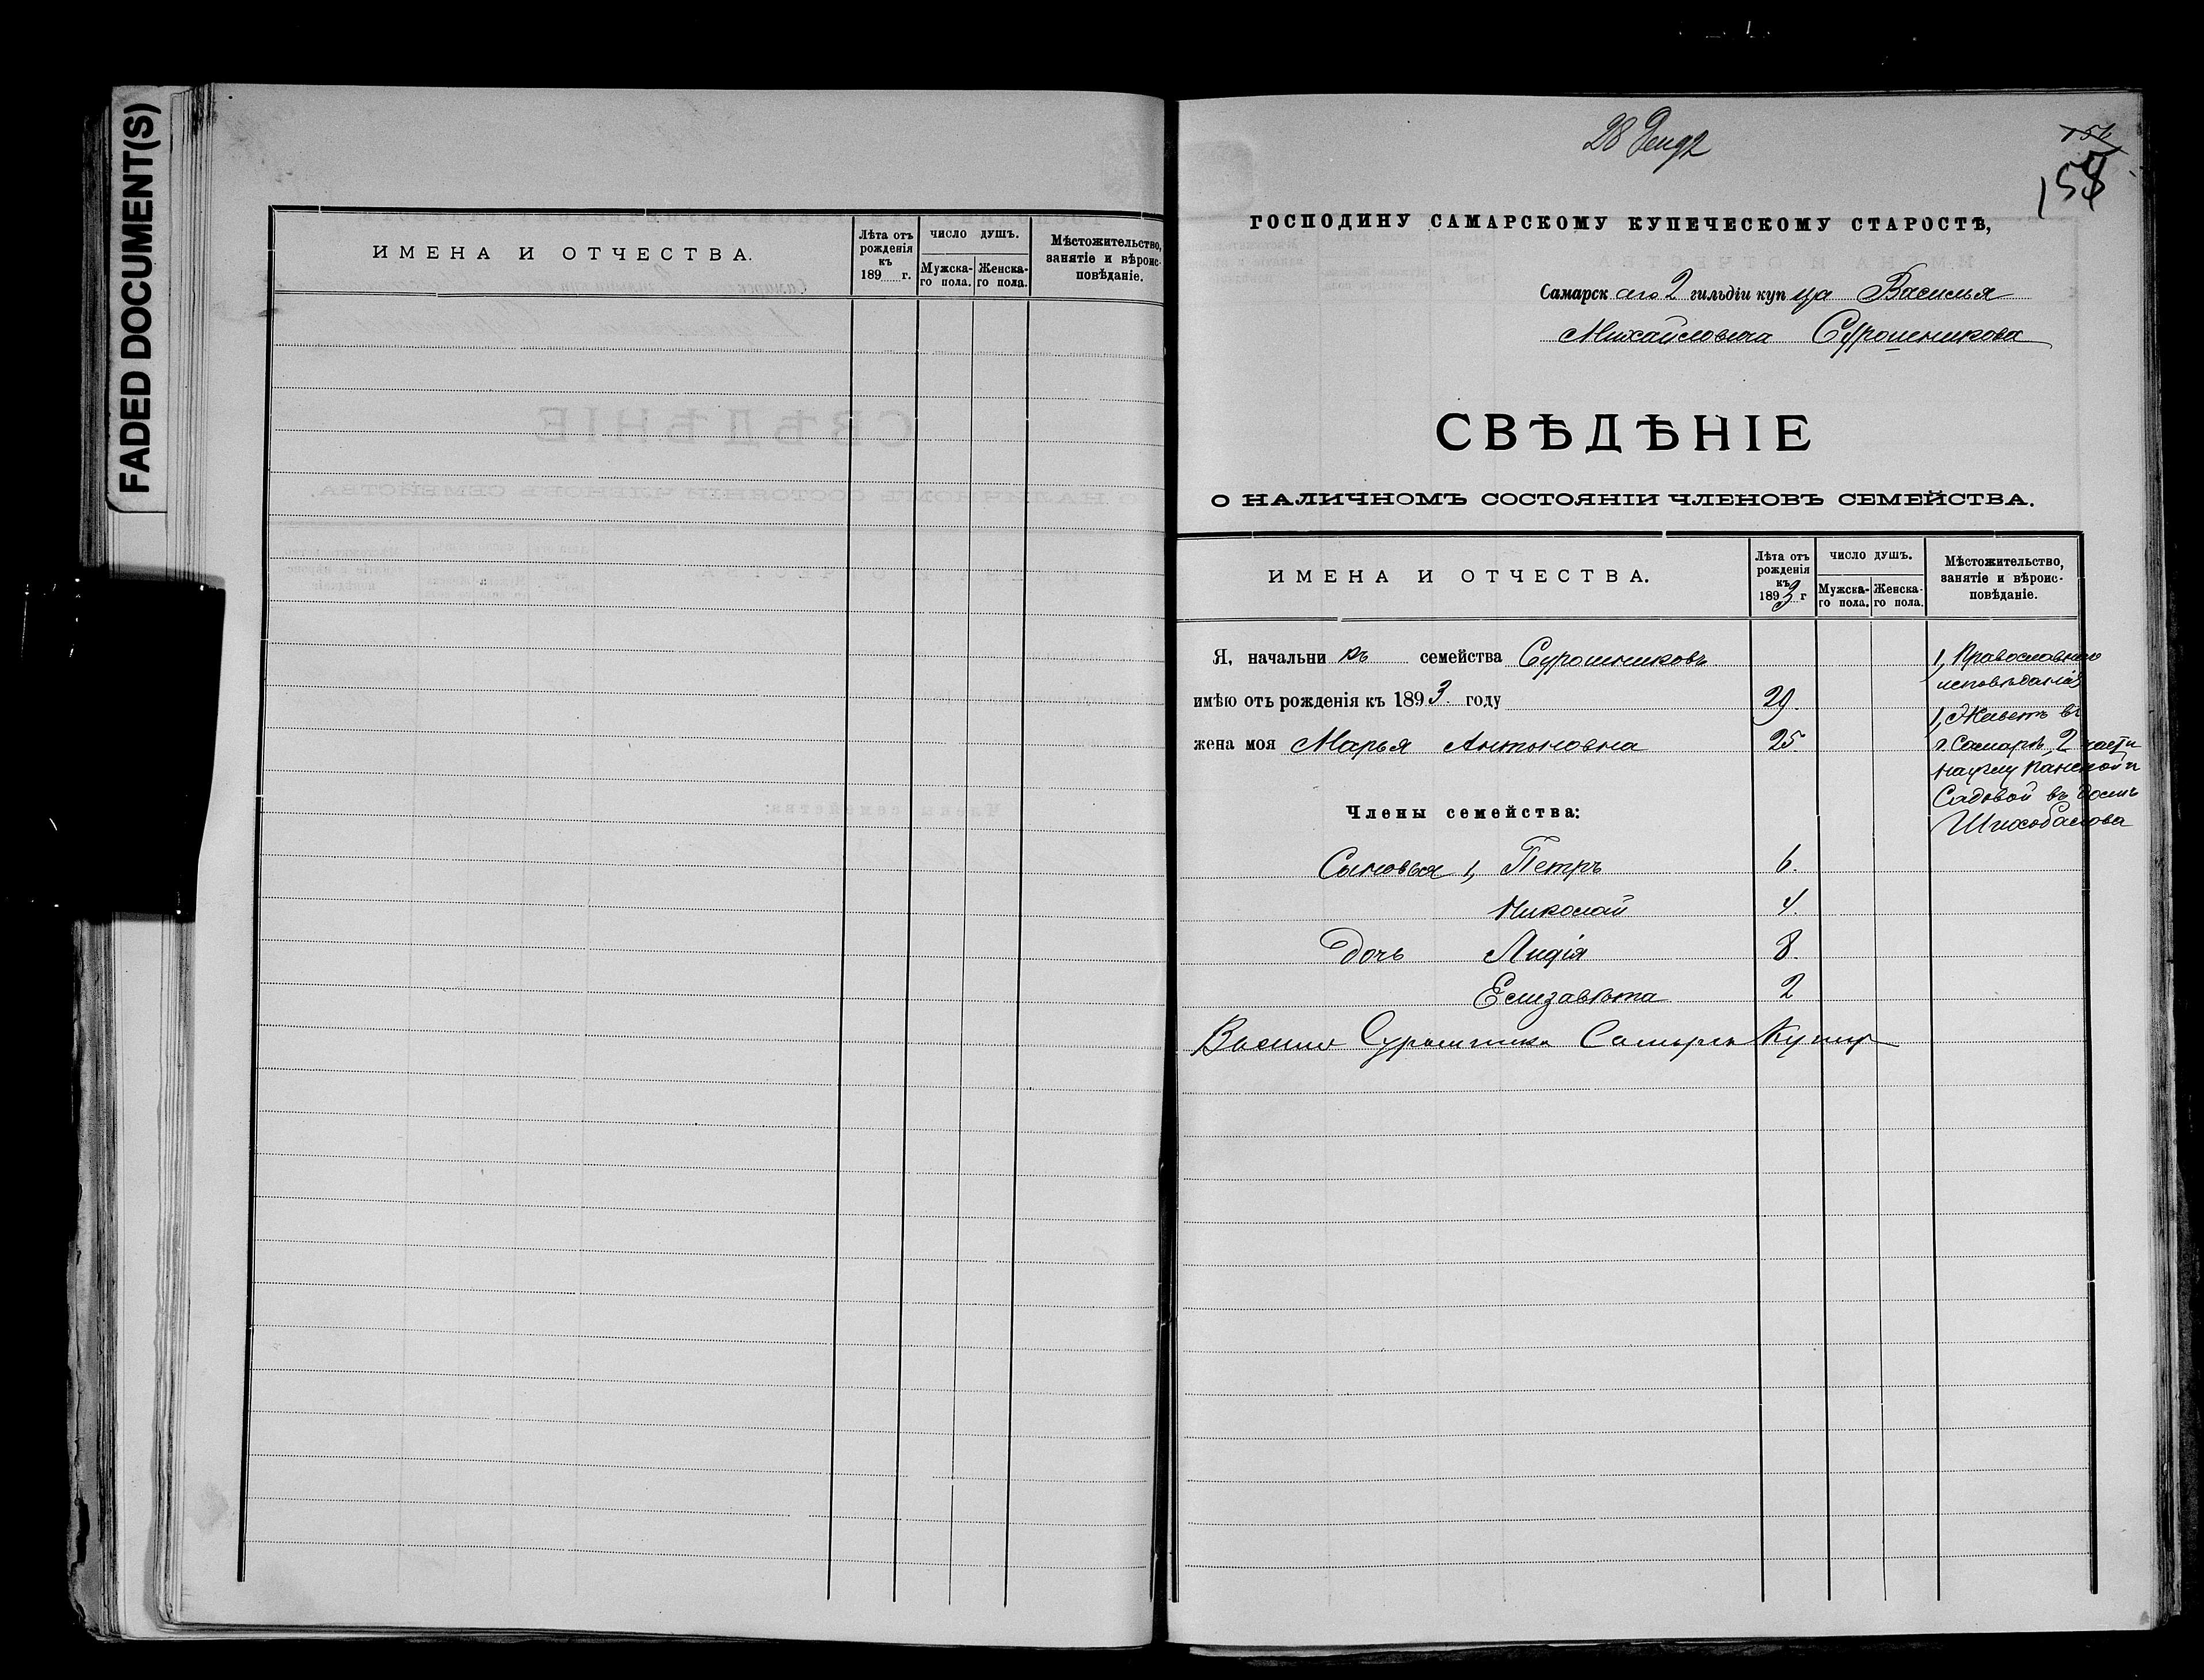 FADED DOCUMENT(S)
ИМЕНА И ОТЧЕСТВА.
Лѣта отъ рожденія къ 189 г.
ЧИСЛО ДУШЪ.
Мужска-го пола.
Женска-го пола.
Мѣстожительство, занятіе и вѣроис-повѣданіе.
28
158
ГОСПОДИНУ САМАРСКОМУ КУПЕЧЕСКОМУ СТАРОСТѢ,
Самарскаго 2 гильдіи купца Василья
Михайловича Сурошникова
СВѢДѢНІЕ
О НАЛИЧНОМЪ СОСТОЯНІИ ЧЛЕНОВЪ СЕМЕЙСТВА.
ИМЕНА И ОТЧЕСТВА.
Лѣта отъ рожденія къ 1893 г
ЧИСЛО ДУШЪ.
Мужска-го пола.
Женска-го пола.
Мѣстожительство, занятіе и вѣроис-повѣданіе.
Я, начальникъ семейства Сурошниковъ
имѣю отъ рожденія къ 1893. году 29.
жена моя Марья Антоновна 25
1, Православнаго
исповѣданія
1, Живетъ въ
г. Самарѣ, 2 части
на углу Панской и
Садовой въ домѣ
Шихобалова
Члены семейства:
Сыновья 1, Петръ 6.
Николай 4.
Дочь Лидія 8.
Елизавѣта 2